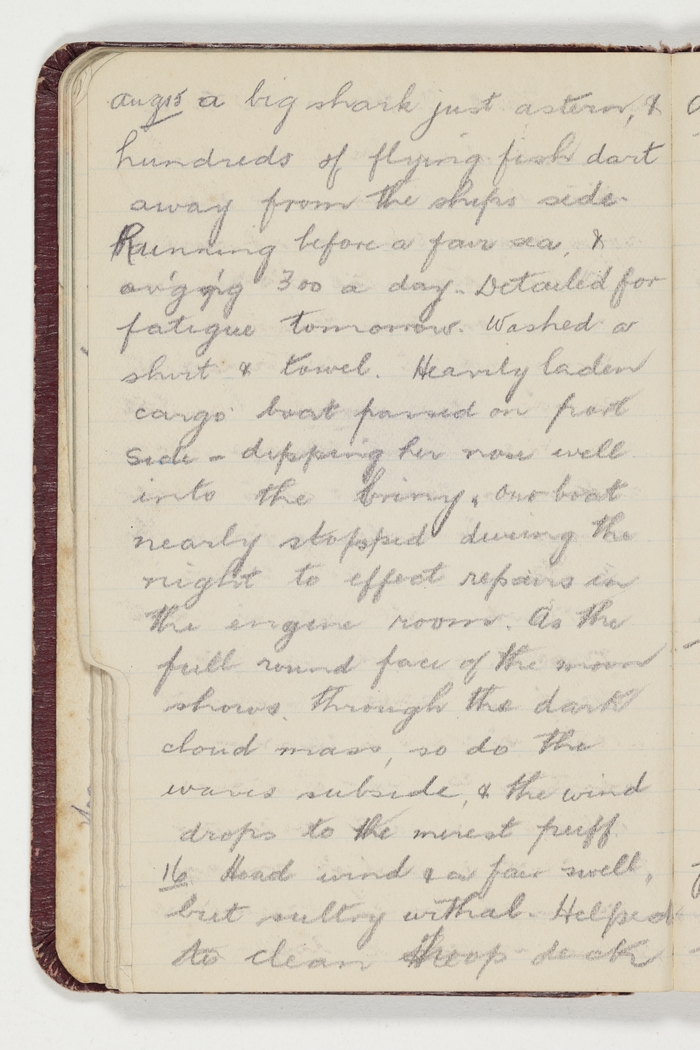 Aug 15 a big shark just astern, &
hundreds of flying fish dart
away from the ships side.
Running before a fair sea, &
av'g'g 300 a day. Detailed for
fatigue tomorrow. Washed a
shirt & towel. Heavily laden
cargo boat passed on port
side - dipping her nose well
into the briny. Our boat
nearly stopped during the
night to effect repairs in
the engine room. As the
full round face of the moon
shows through the dark
cloud mass, so do the
waves subside, & the wind
drops to the merest puff.
16 Head wind & a fair swell,
but sultry withal. Helped
to clean troop deck